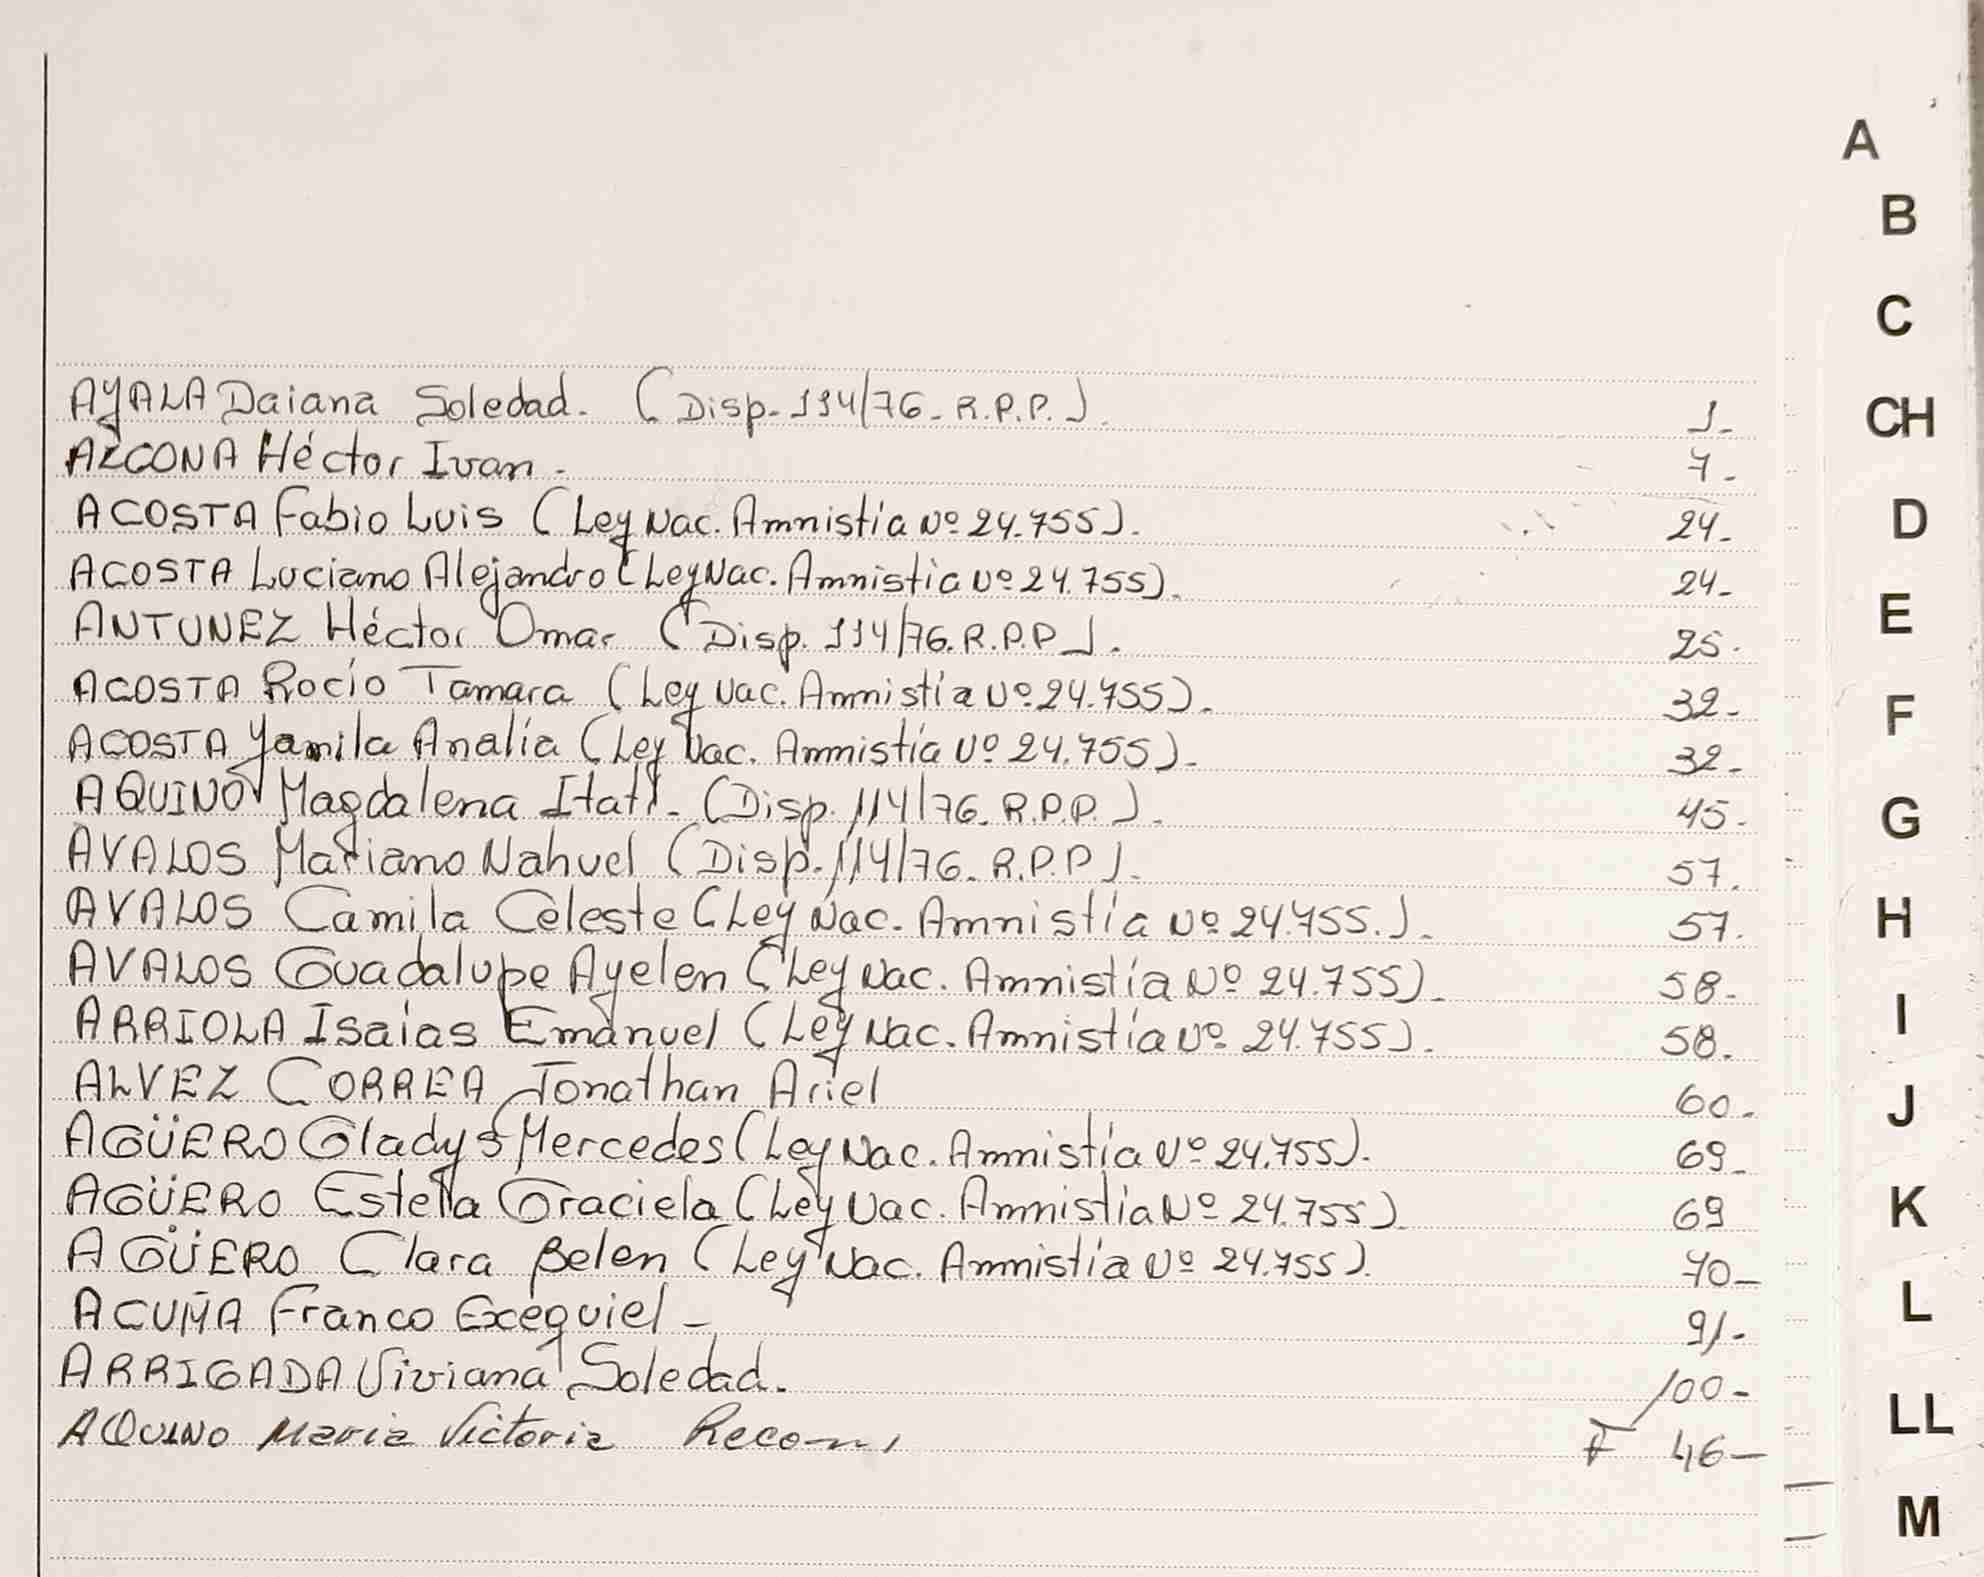 AYALA Daiana Soledad. (Disp. 114/76. R.P.P.). 1-
ALCONA Héctor Ivan. 7-
ACOSTA Fabio Luis (Ley Nac. Amnistía Nº 24.755). 24-
ACOSTA Luciano Alejandro (Ley Nac. Amnistia Nº 24.755). 24-
ANTUNEZ Héctor Omar (Disp. 114/76. R.P.P). 25.
ACOSTA Rocío Tamara (Ley Nac. Amnistía Nº 24.755). 32-
ACOSTA Yamila Analía (Ley Nac. Amnistía Nº 24.755). 32-
AQUINO Magdalena Itatí. (Disp. 114/76. R.P.P.). 45-
AVALOS Mariano Nahuel (Disp. 114/76. R.P.P). 57.
AVALOS Camila Celeste (Ley Nac. Amnistía Nº 24.755.). 57.
AVALOS Guadalupe Ayelen (Ley Nac. Amnistía Nº 24.755). 58-
ARRIOLA Isaías Emanuel (Ley Nac. Amnistía Nº 24.755). 58.
ALVEZ CORREA Jonathan Ariel 60-
AGÜERO Gladys Mercedes (Ley Nac. Amnistía Nº 24.755). 69-
AGÜERO Estella Graciela (Ley Nac. Amnistía Nº 24.755). 69
AGÜERO Clara Belen (Ley Nac. Amnistía Nº 24.755). 70-
ACUÑA Franco Exequiel - 91-
ARRIGADA Viviana Soledad. 100-
AQUINO Maria Victoria F 46-
A
B
C
CH
D
E
F
G
H
I
J
K
L
LL
M